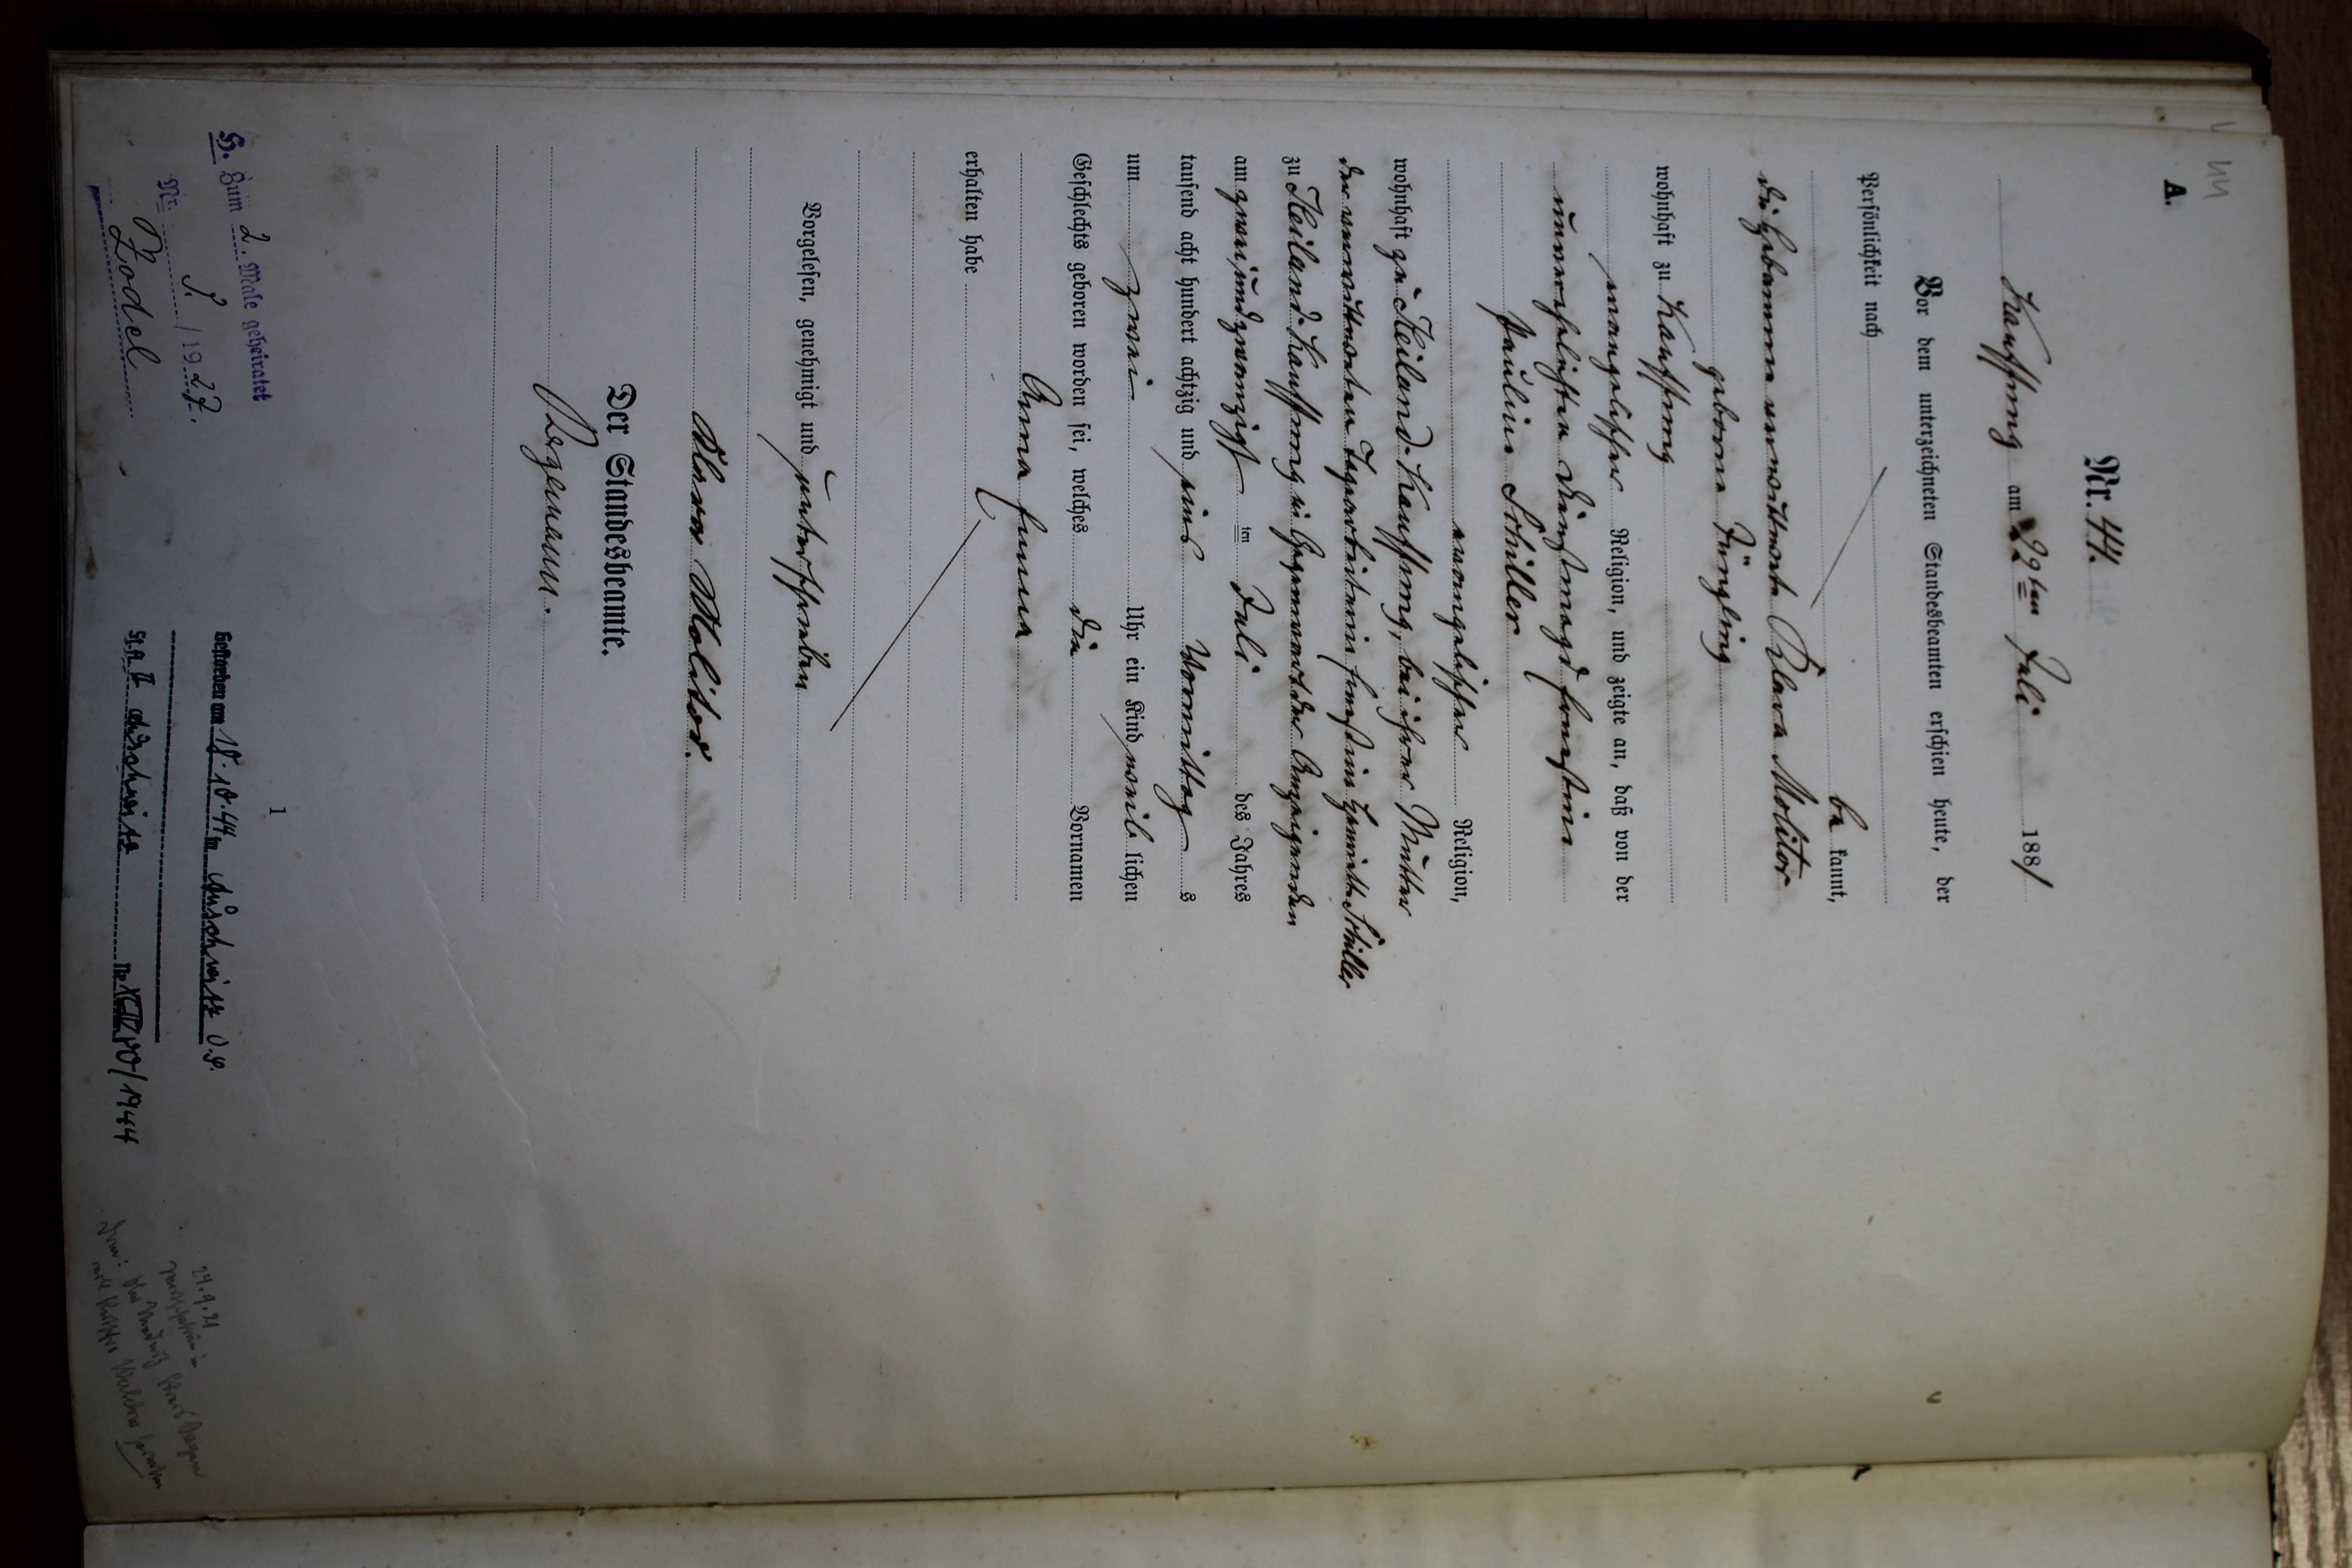 44
A.
Nr. 44.
Kauffung am 29ten Juli 1881
Vor dem unterzeichneten Standesbeamten erschien heute, der
Persönlichkeit nach
be kannt,
die Hebamme verwittwete Klara Molitor
geborne Jüngling
wohnhaft zu Kauffung
evangelischer Religion, und zeigte an, daß von der
unverehelichten Dienstmagd Ernestine
Pauline Schiller
evangelischer Religion,
wohnhaft zu Heiland-Kauffung, bei ihrer Mutter
der verwittweten Tagearbeiterin Ernestine Schiller
zu Heiland-Kauffung in Gegenwart der Anzeigenden
am zweiundzwanzigsten Juli des Jahres
tausend acht hundert achtzig und eins Vormittags
um zwei Uhr ein Kind weiblichen
Geschlechts geboren worden sei, welches die Vornamen
Anna Emma
erhalten habe
Vorgelesen, genehmigt und unterschrieben
Klara Molitor.
Der Standesbeamte.
Degemann.
1
H. Zum 2. Male geheiratet
Nr. /1927.
Zodel
Gestorben am 18.10.44 in
St.A. II Nr. /1944
24.9.21